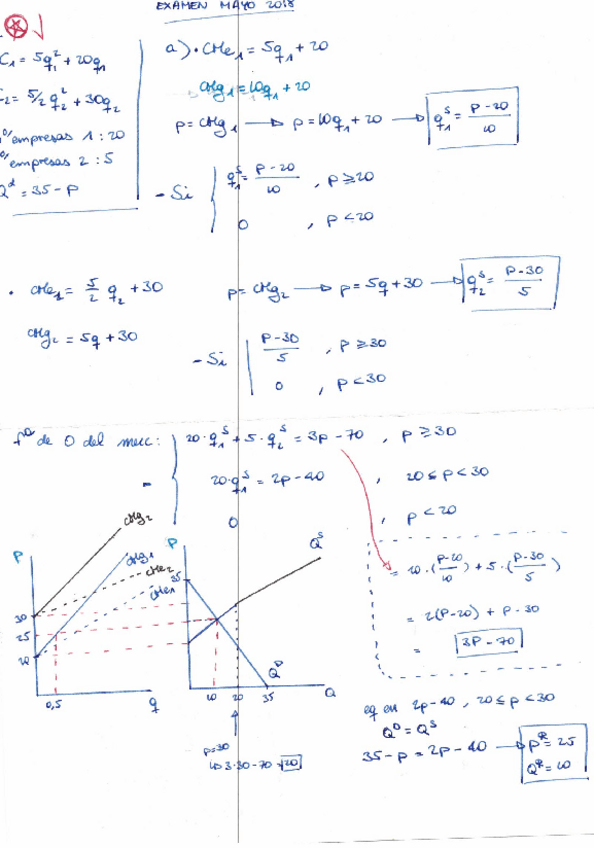 EXAMEN MAYO 2018
C₁ = 5q₁² + 20q₁
C₂ = 5/2 q₂² + 30q₂
empresas 1 : 20
empresas 2 : 5
Q^d = 35 - P
a) · CMe₁ = 5q₁ + 20
CMg₁ = 10q₁ + 20
P = CMg₁ → P = 10q₁ + 20 → q₁^s = (P - 20)/10
- Si { q₁^s = (P - 20)/10 , P ≥ 20
0 , P < 20
· CMe₂ = 5/2 q₂ + 30
P = CMg₂ → P = 5q + 30 → q₂^s = (P - 30)/5
CMg₂ = 5q + 30
- Si | (P - 30)/5 , P ≥ 30
0 , P < 30
fº de O del merc: { 20·q₁^s + 5·q₂^s = 3P - 70 , P ≥ 30
- 20·q₁^s = 2P - 40 , 20 ≤ P < 30
0 , P < 20
= 20·((P - 20)/10) + 5·((P - 30)/5)
= 2(P - 20) + P - 30
= 3P - 70
P
CMg₂
CMg₁
CMe₂
CMe₁
30
25
20
0,5
q
P
35
Q^s
Q^D
10
20
35
Q
P = 30
↳ 3·30 - 70 = 20
eq en 2P - 40 , 20 ≤ P < 30
Q^D = Q^s
35 - P = 2P - 40 → P* = 25
Q* = 10